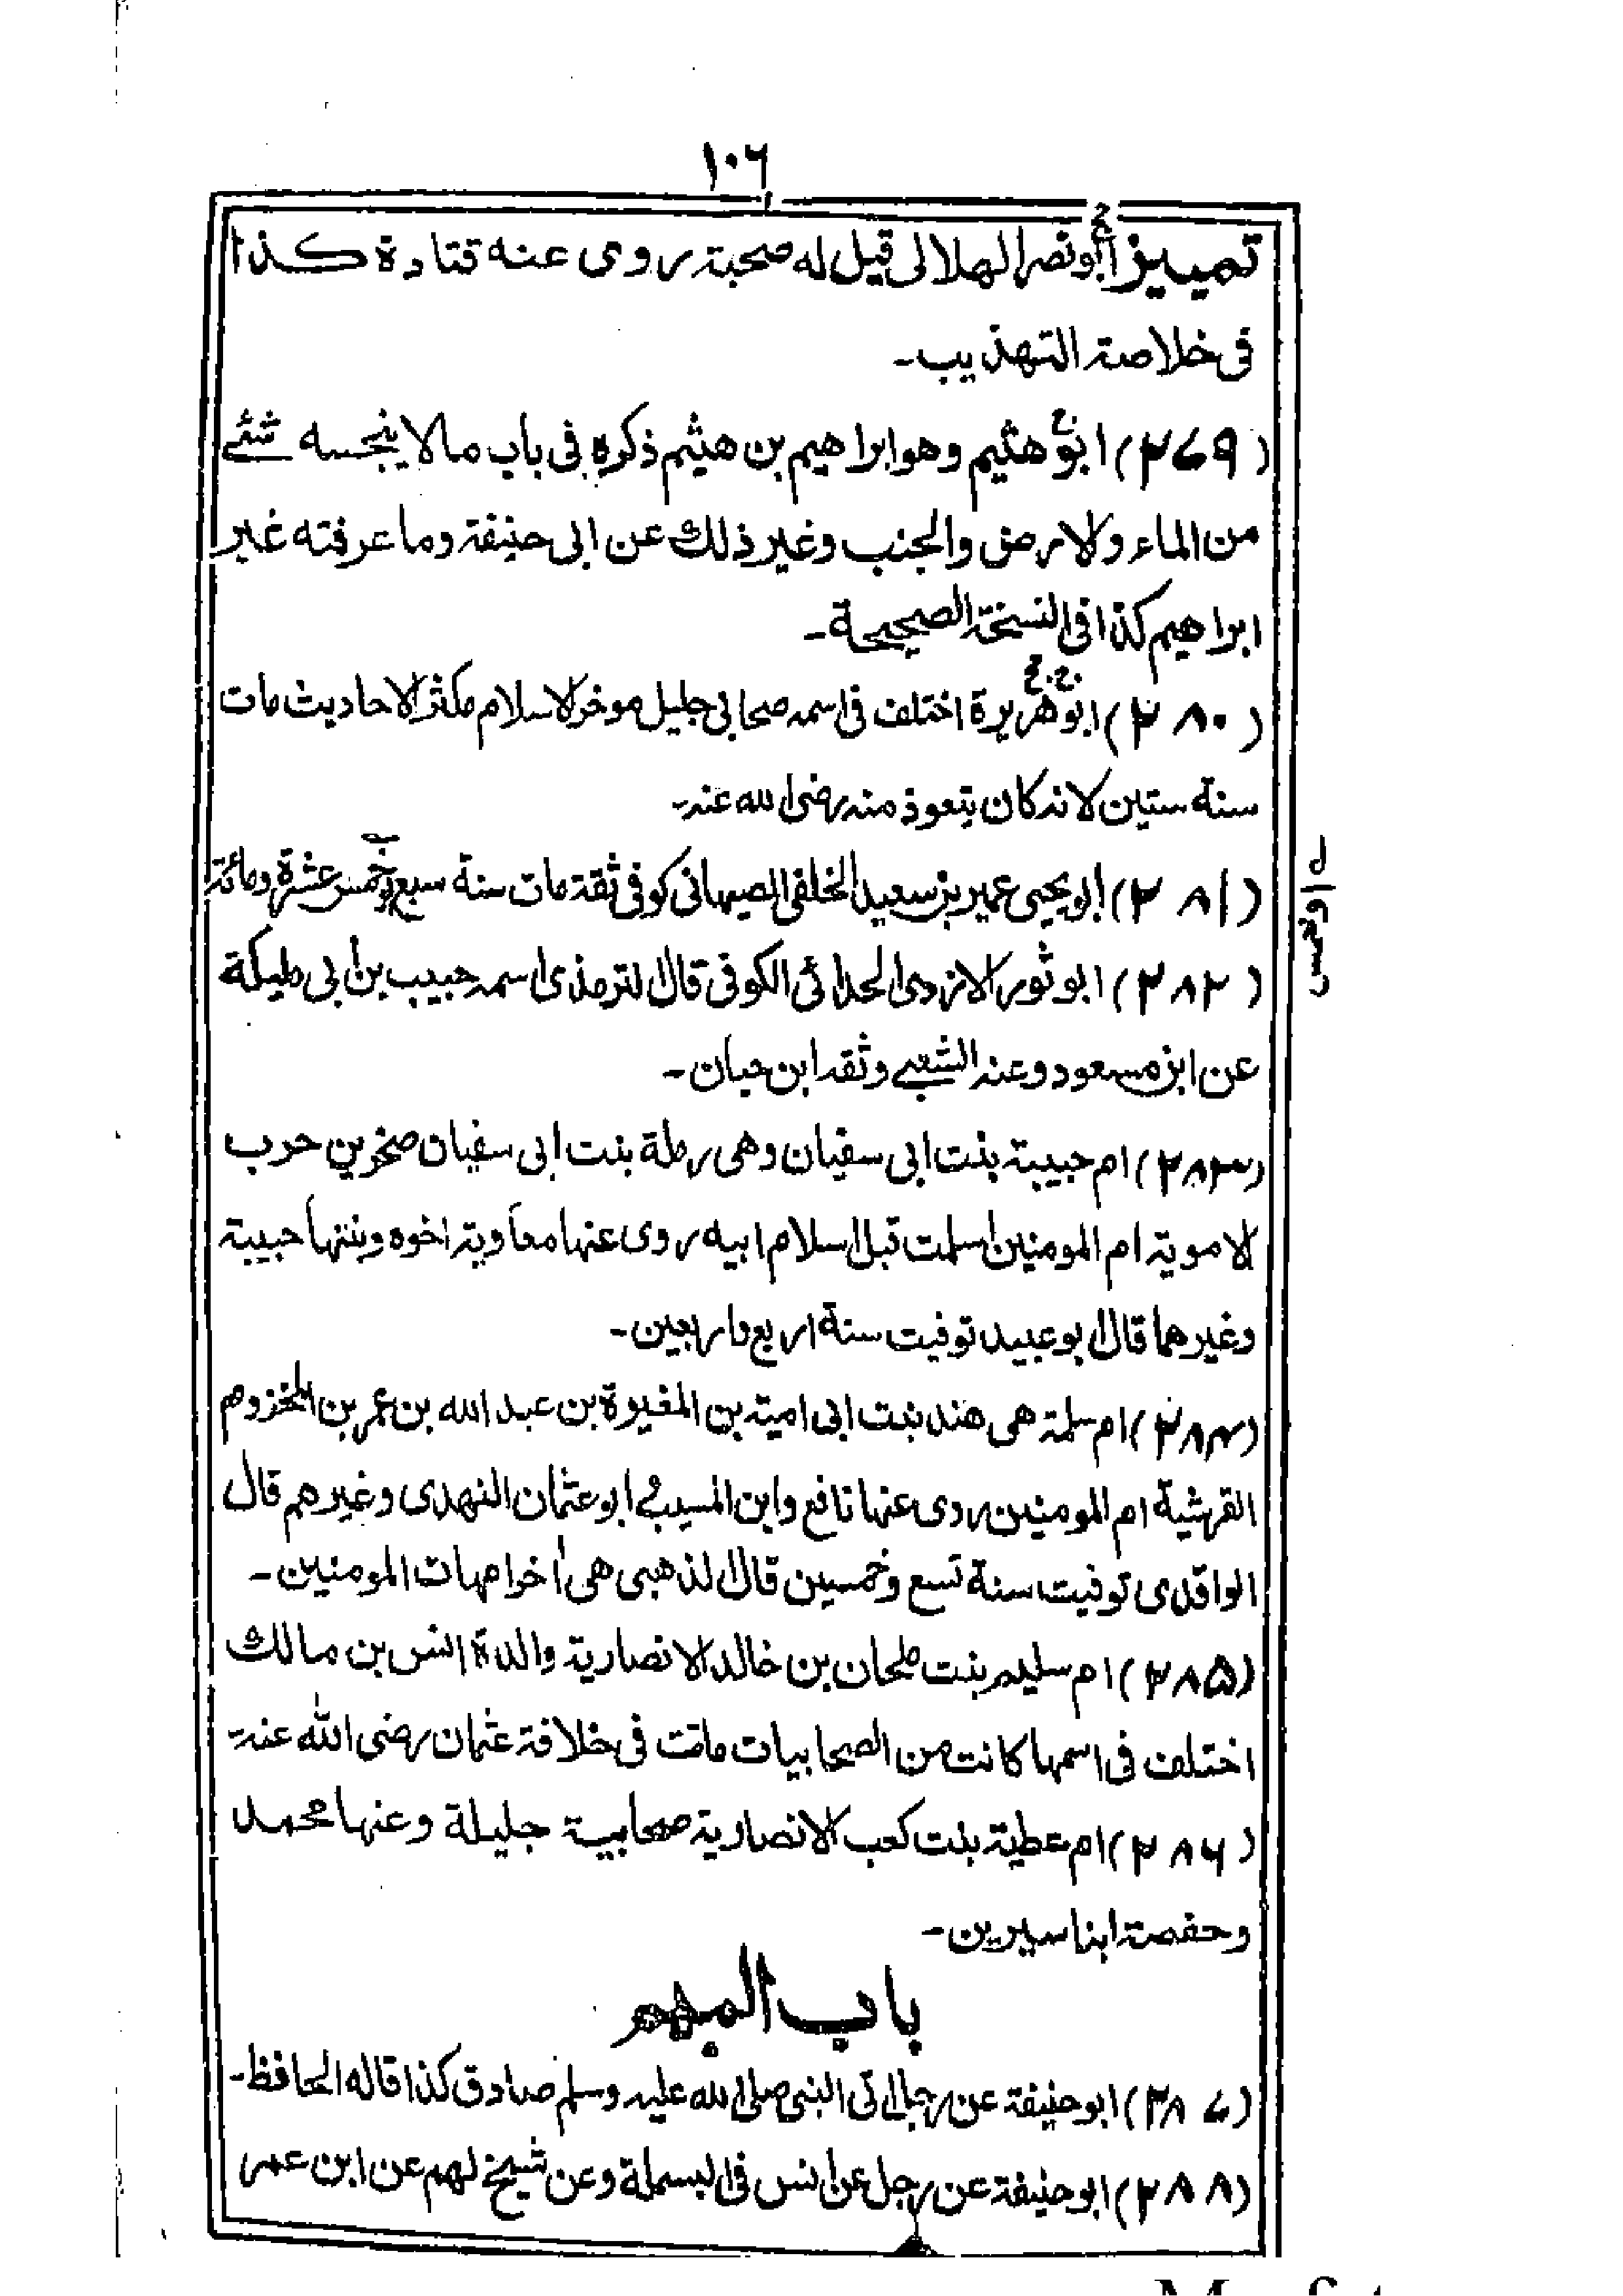 ۱۰۶
تمييز ابو نصر الهلالى قيل له صحبة روى عنه قتادة كذا
فى خلاصة التهذيب۔
(۲۷۹) ابو هثيم وهو ابراهيم بن هيثم ذكره فى باب ما لا ينجسه شئے
من الماء ولارض والجنب وغير ذلك عن ابى حنيفة وما عرفته غير
ابراهيم كذا فى النسخة الصحيحة۔
(۲۸۰) ابو هريرة اختلف فى اسمه صحابى جليل موخر الاسلام مكثر الاحاديث مات
سنة ستين لانه كان يتعوذ منه رضى الله عنه
(۲۸۱) ابو يحيى عمير بن سعيد الخلفى الصهبانى كوفى ثقة مات سنة سبع وخمس عشرة ومائة
(۲۸۲) ابو ثور الازدى الحدائى الكوفى قال الترمذى اسمه حبيب بن ابى مليكة
عن ابن مسعود وعنه الشعبے وثقه ابن حبان۔
(۲۸۳) ام حبيبة بنت ابى سفيان وهى رملة بنت ابى سفيان صخر بن حرب
الاموية ام المومنين اسلمت قبل اسلام ابيه روى عنها معاوية اخوه وبنتها حبيبة
وغيرهما قال ابو عبيد توفيت سنة اربع واربعين۔
(۲۸۴) ام سلمة هى هند بنت ابى امية بن المغيرة بن عبد الله بن عمر بن المخزوم
القرشية ام المومنين روى عنها نافع وابن المسيب ابو عثمان النهدى وغيرهم قال
الواقدى توفيت سنة تسع وخمسين قال الذهبى هى اخر امهات المومنين۔
(۲۸۵) ام سليم بنت ملحان بن خالد الانصارية والدة انس بن مالك
اختلف فى اسمها كانت من الصحابيات ماتت فى خلافة عثمان رضى الله عنه
(۲۸۶) ام عطية بنت كعب الانصارية صحابية جليلة وعنها محمد
وحفصة ابنا سيرين۔
باب المبهم
(۲۸۷) ابو حنيفة عن رجال اتى النبى صلى الله عليه وسلم صادق كذا قاله الحافظ۔
(۲۸۸) ابو حنيفة عن رجل عن انس فى البسملة وعن شيخ لهم عن ابن عمر